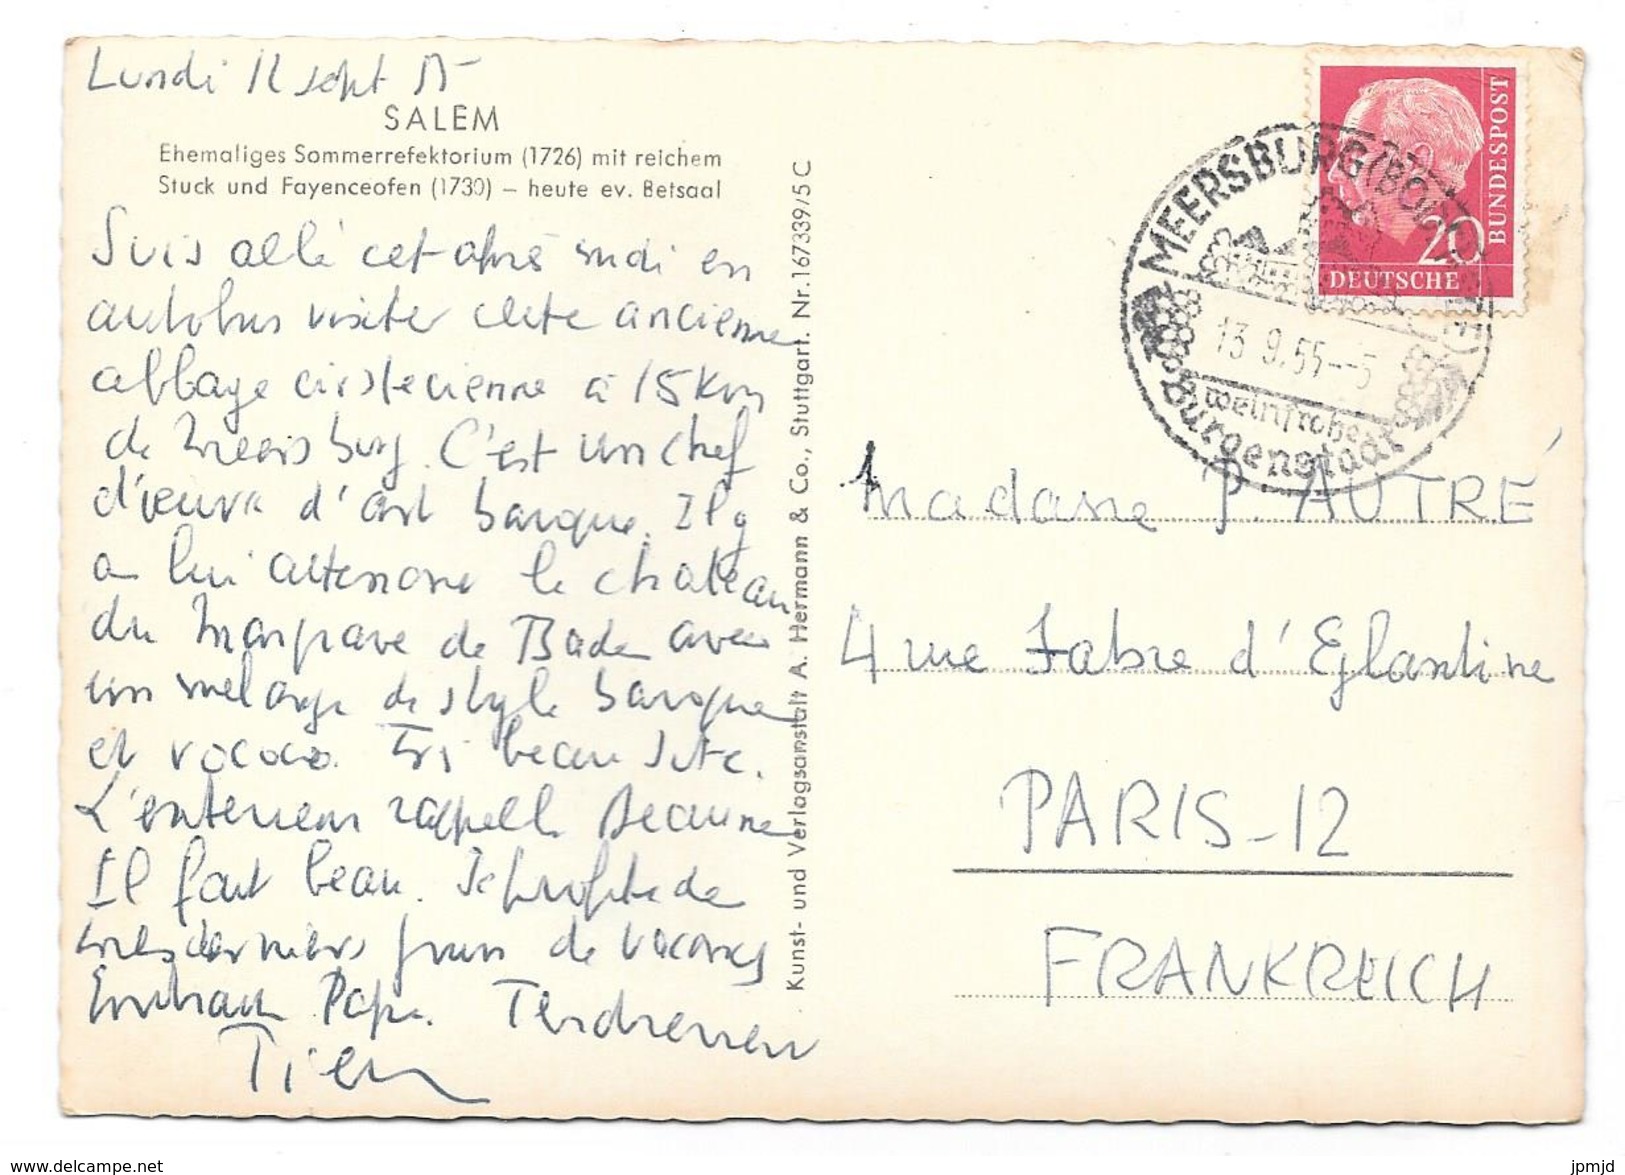 Lundi 12 sept 55
SALEM
Ehemaliges Sommerrefektorium (1726) mit reichem
Stuck und Fayenceofen (1730) – heute ev. Betsaal
Suis allé cet après midi en
autobus visiter cette ancienne
abbaye cistecienne à 15 km
de Meersburg. C'est un chef
d'œuvre d'art baroque. Il y
a lui attenant le chateau
du Margrave de Bade avec
un mélange de style baroque
et rococo. Très beau site.
L'exterieur rappelle Beaune
Il fait beau. Je profite de
mes derniers jours de vacances
Embrasse Papa. Tendrement
Kunst- und Verlagsanstalt A. Hermann & Co., Stuttgart. Nr. 167339/5 C
DEUTSCHE
BUNDESPOST
20
MEERSBURG (BODENSEE)
13.9.55--5
weinfrohe
Burgenstadt
Madame P. AUTRÉ
4 rue Fabre d'Eglantine
PARIS-12
FRANKREICH
www.delcampe.net
jpmjd